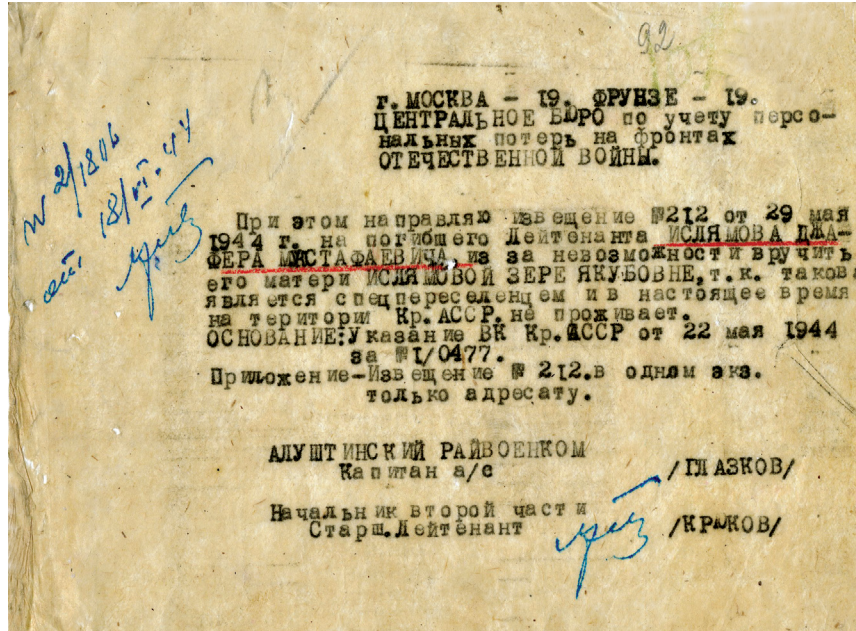 92
г. МОСКВА - 19. ФРУНЗЕ - 19.
ЦЕНТРАЛЬНОЕ БЮРО по учету персо-
нальных потерь на фронтах
ОТЕЧЕСТВЕННОЙ ВОЙНЫ.
№ 2/1806
от 18/VI-44
При этом направляю извещение №212 от 29 мая
1944 г. на погибшего Лейтенанта ИСЛЯМОВА ДЖА-
ФЕРА МУСТАФАЕВИЧА, из за невозможности вручить
его матери ИСЛЯМОВОЙ ЗЕРЕ ЯКУБОВНЕ,т.к. такова
является спецпереселенцем и в настоящее время
на територии Кр.АССР.не проживает.
ОСНОВАНИЕ:Указание ВК Кр.АССР от 22 мая 1944
за №1/0477.
Приложение-Извещение № 212.в одном экз.
только адресату.
АЛУШТИНСКИЙ РАЙВОЕНКОМ
Капитан а/с /ГЛАЗКОВ/
Начальник второй части
Старш.Лейтенант /КРЮКОВ/